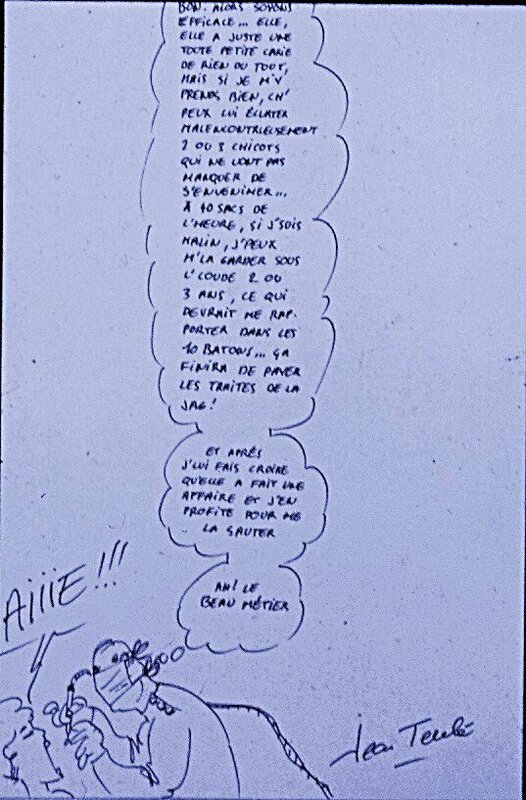 BON. ALORS SOYONS
EFFICACE... ELLE,
ELLE A JUSTE UNE
TOUTE PETITE CARIE
DE RIEN DU TOUT,
MAIS SI JE M'Y
PRENDS BIEN, CH'
PEUX LUI ÉCLATER
MALENCONTREUSEMENT
2 OU 3 CHICOTS
QUI NE VONT PAS
MANQUER DE
S'ENVENIMER...
À 40 SACS DE
L'HEURE, SI J'SUIS
MALIN, J'PEUX
M'LA GARDER SOUS
L'COUDE 2 OU
3 ANS, CE QUI
DEVRAIT ME RAP-
PORTER DANS LES
10 BATONS... ÇA
FINIRA DE PAYER
LES TRAITES DE LA
JAG!
ET APRÉS
J'LUI FAIS CROIRE
QU'ELLE A FAIT UNE
AFFAIRE ET J'EN
PROFITE POUR ME
LA SAUTER
AH! LE
BEAU MÉTIER
AIIIE!!!
Jean Teulé